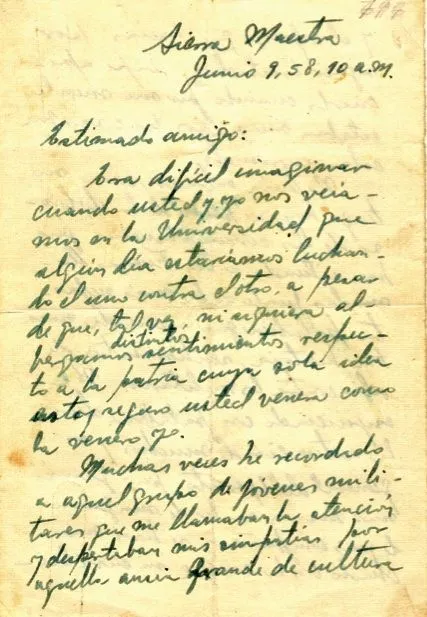 799
Sierra Maestra
Junio 9, 58, 10 a.m.
Estimado amigo:
Era difícil imaginar
cuando usted y yo nos veia-
mos en la Universidad que
algún día estariamos luchan-
do el uno contra el otro, a pesar
de que, tal vez, ni siquiera al-
distintos
bergamos sentimientos respec-
to a la patria cuya sola idea
estoy seguro usted venera como
la venero yo.
Muchas veces he recordado
a aquel grupo de jóvenes mili-
tares que me llamaban la atención
y despertaban mis simpatías por
aquella ansia grande de cultura